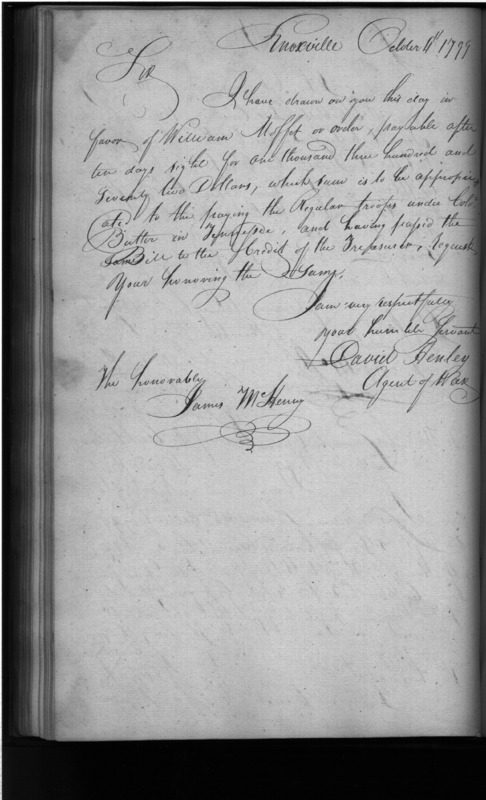 Knoxville October 11th 1799
Sir
I have drawn on you this day in
favor of William Moffet or order, payable after
ten days sight for one thousand three hundred and
Seventy two Dollars, which sum is to be appropri
ated to the paying the Regular troops under Colo
Butler in Tennessee, and having passed the
Same Bill to the Credit of the Treasurer, request
Your honoring the Same.
I am very respectfully
your humble Servant
David Henley
Agent of War
The honorable
James McHenry